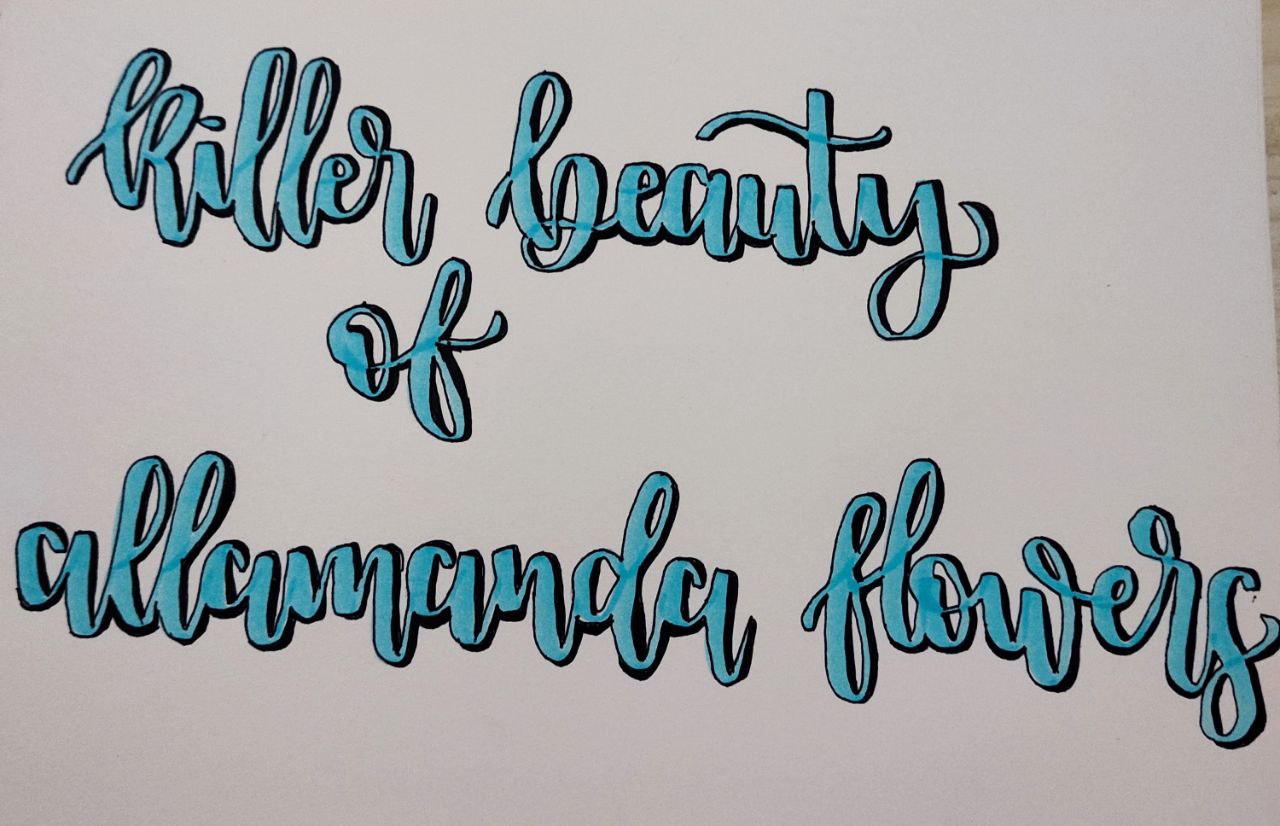 killer beauty
of
allamanda flowers